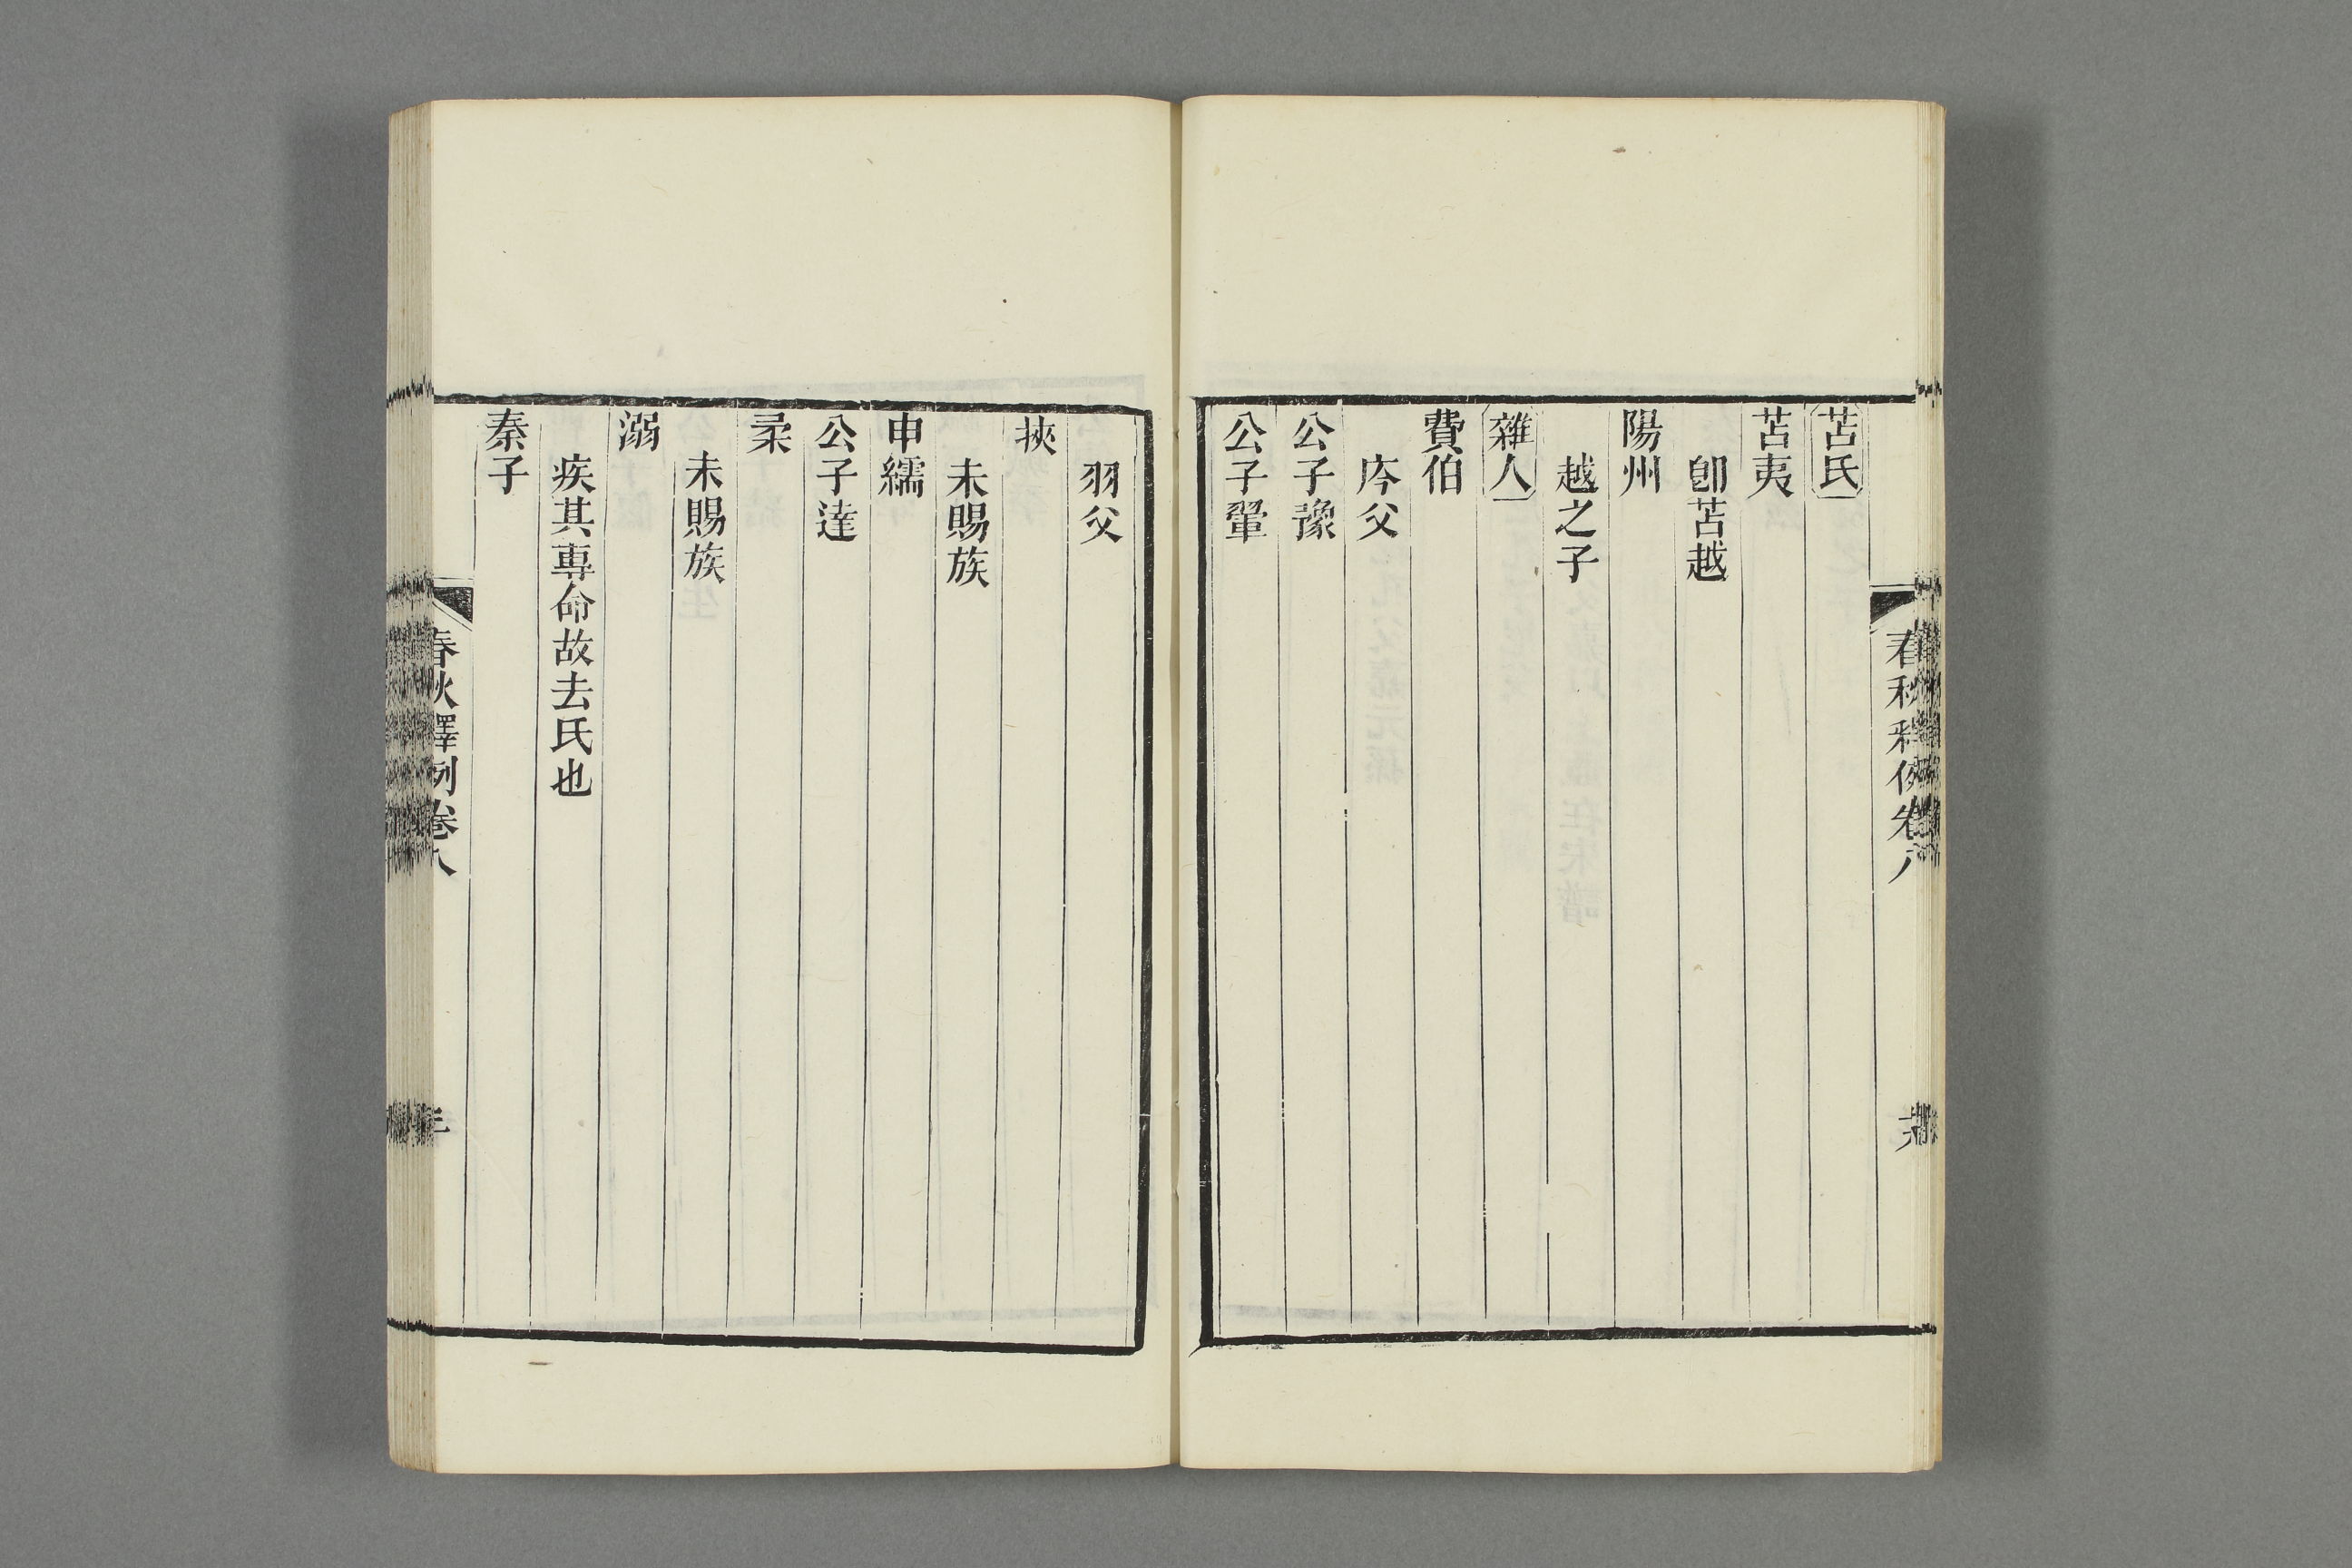 春秋釋例卷八
苫氏
苫夷
卽苫越
陽州
越之子
雜人
費伯
庈父
公子豫
公子翬
羽父
挾
未賜族
申繻
公子達
柔
未賜族
溺
疾其專命故去氏也
秦子
春秋釋例卷八